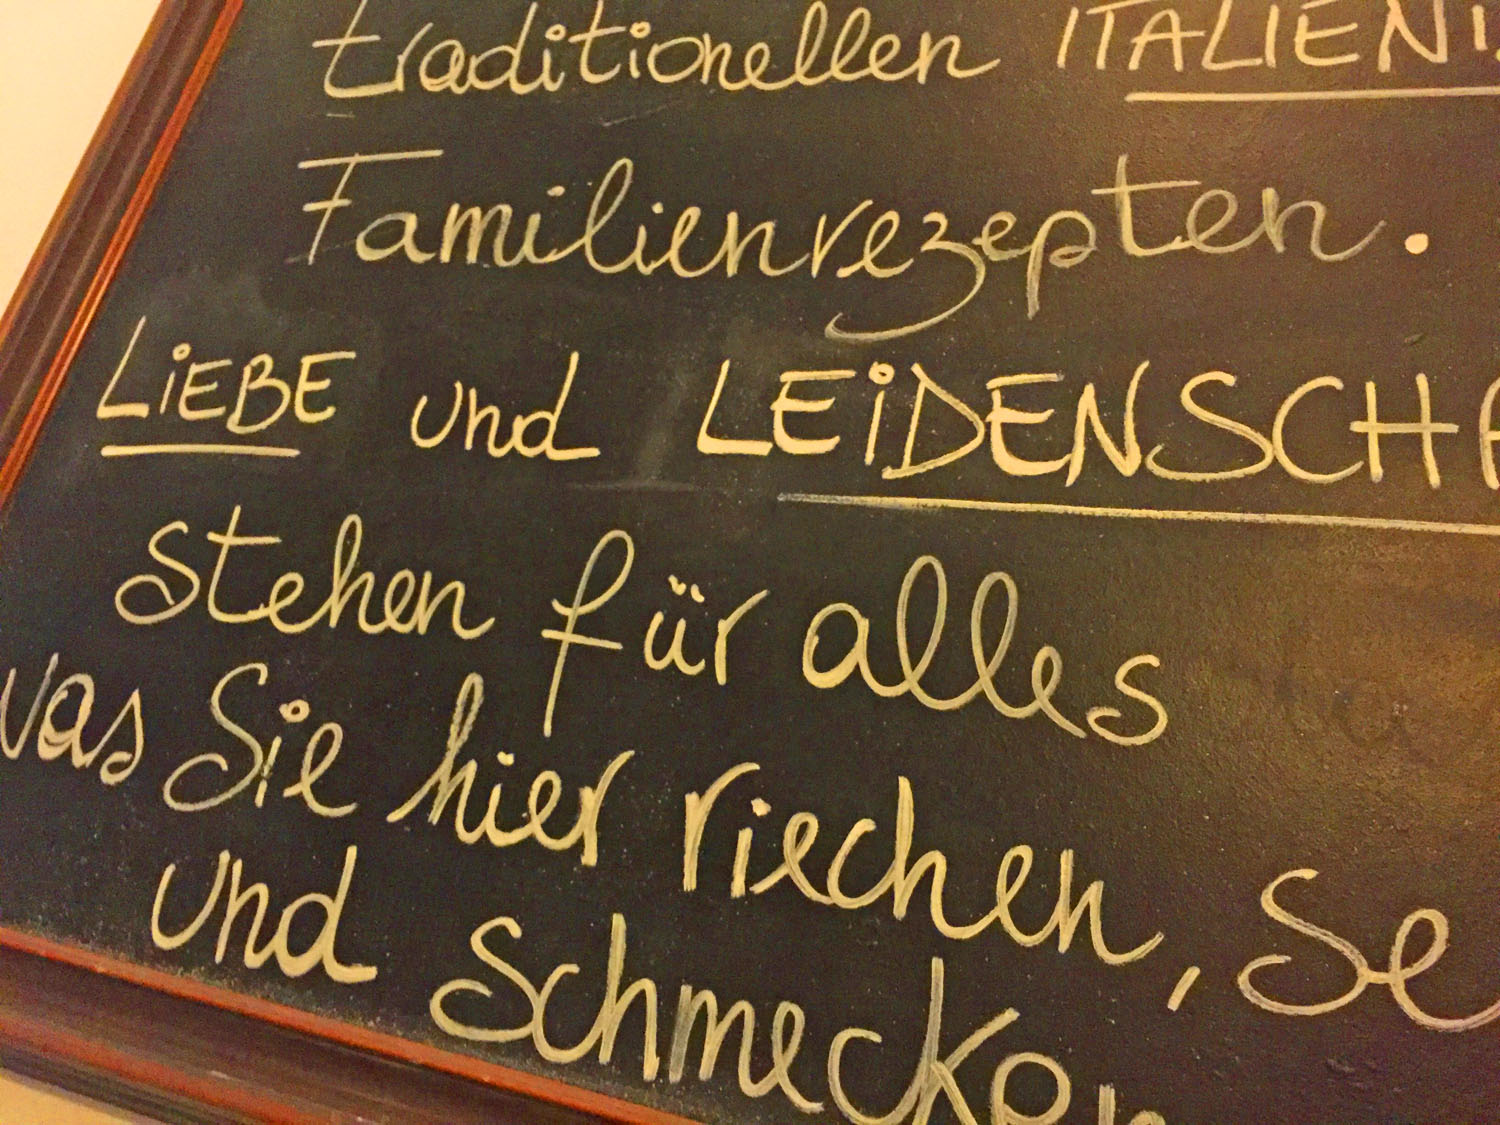 traditionellen ITALIENI
Familienrezepten.
LiEBE und LEiDENSCHA
stehen für alles
was Sie hier riechen, se
und schmecken